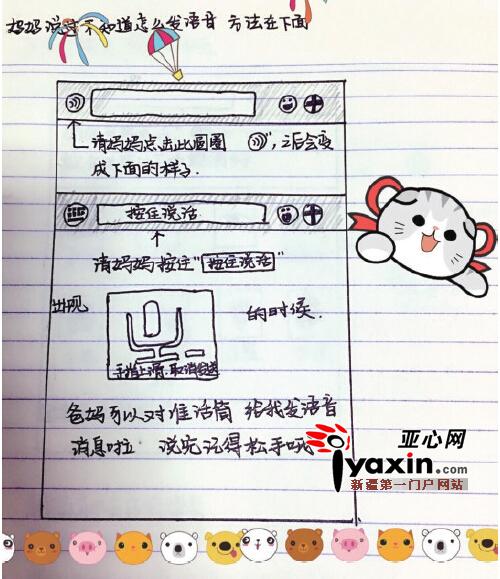 妈妈说过不知道怎么发语音 方法在下面
请妈妈点击此圆圈 ，之后会变
成下面的样子.
按住说话
请妈妈按住"按住说话"
出现
的时候.
手指上滑.取消发送
爸妈可以对准话筒 给我发语音
消息啦 说完记得松手哦
亚心网
iyaxin.com
新疆第一门户网站